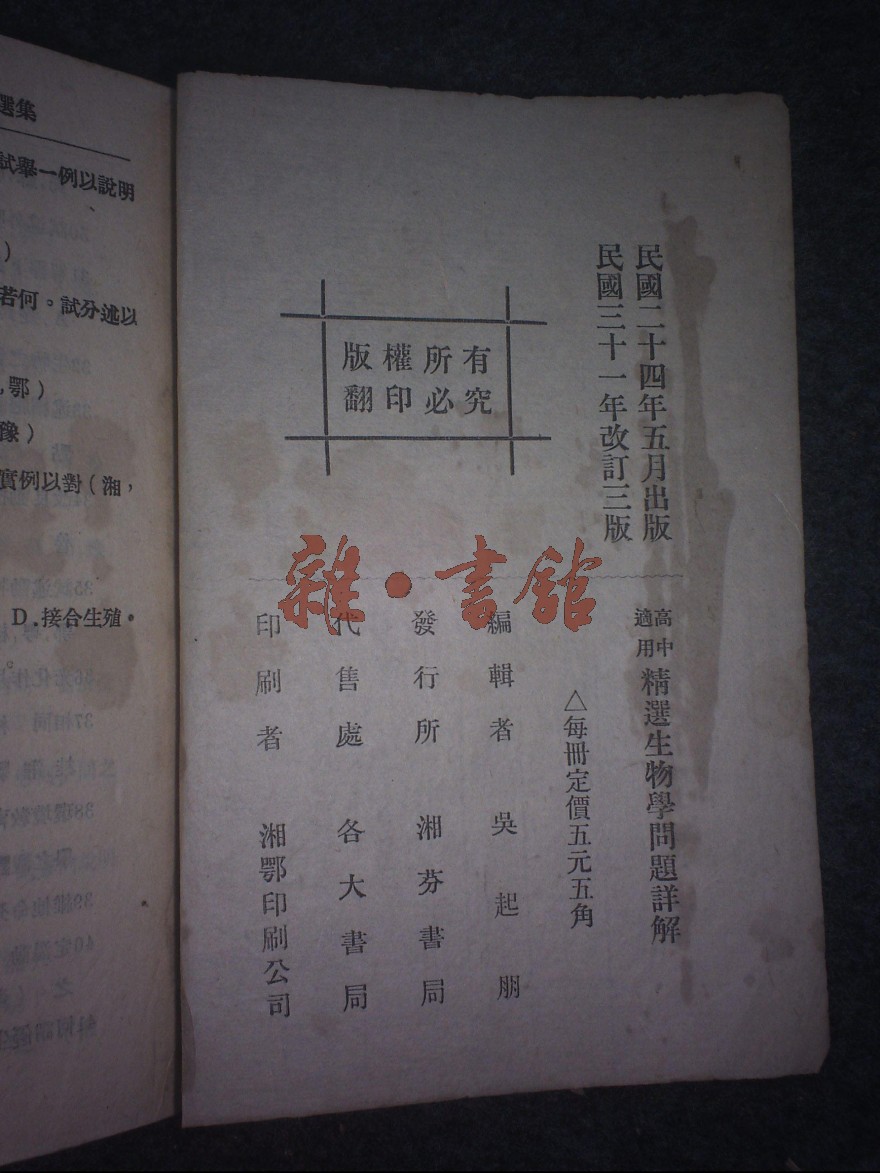 民國二十四年五月出版
民國三十一年改訂三版
有所權版
究必印翻
高中適用 精選生物學問題詳解
△每冊定價五元五角
編輯者 吳起朋
發行所 湘芬書局
代售處 各大書局
印刷者 湘鄂印刷公司
雜·書館
選集
試舉一例以說明
)
若何。試分述以
,鄂)
豫)
實例以對(湘,
D.接合生殖。
。